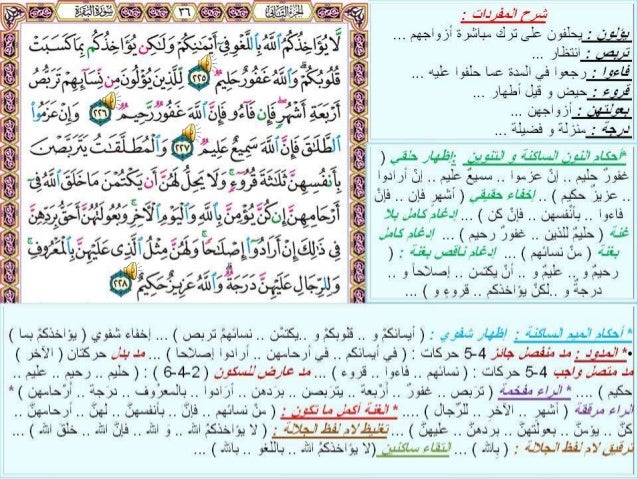 الجزء الثاني ٣٦ سورة البقرة
لَّا يُؤَاخِذُكُمُ ٱللَّهُ بِٱللَّغْوِ فِىٓ أَيْمَٰنِكُمْ وَلَٰكِن يُؤَاخِذُكُم بِمَا كَسَبَتْ
قُلُوبُكُمْ ۗ وَٱللَّهُ غَفُورٌ حَلِيمٌ ٢٢٥ لِّلَّذِينَ يُؤْلُونَ مِن نِّسَآئِهِمْ تَرَبُّصُ
أَرْبَعَةِ أَشْهُرٍ ۖ فَإِن فَآءُو فَإِنَّ ٱللَّهَ غَفُورٌ رَّحِيمٌ ٢٢٦ وَإِنْ عَزَمُوا۟
ٱلطَّلَٰقَ فَإِنَّ ٱللَّهَ سَمِيعٌ عَلِيمٌ ٢٢٧ وَٱلْمُطَلَّقَٰتُ يَتَرَبَّصْنَ
بِأَنفُسِهِنَّ ثَلَٰثَةَ قُرُوٓءٍ ۚ وَلَا يَحِلُّ لَهُنَّ أَن يَكْتُمْنَ مَا خَلَقَ ٱللَّهُ فِىٓ
أَرْحَامِهِنَّ إِن كُنَّ يُؤْمِنَّ بِٱللَّهِ وَٱلْيَوْمِ ٱلْءَاخِرِ ۚ وَبُعُولَتُهُنَّ أَحَقُّ بِرَدِّهِنَّ
فِى ذَٰلِكَ إِنْ أَرَادُوٓا۟ إِصْلَٰحًا ۚ وَلَهُنَّ مِثْلُ ٱلَّذِى عَلَيْهِنَّ بِٱلْمَعْرُوفِ ۚ
وَلِلرِّجَالِ عَلَيْهِنَّ دَرَجَةٌ ۗ وَٱللَّهُ عَزِيزٌ حَكِيمٌ ٢٢٨
شرح المفردات :
يؤلون : يحلفون على ترك مباشرة أزواجهم ...
تربص : انتظار ...
فاءوا : رجعوا في المدة عما حلفوا عليه ...
قروء : حيض و قيل أطهار ...
بعولتهن : أزواجهن ...
درجة : منزلة و فضيلة ...
*أحكام النون الساكنة و التنوين :إظهار حلقي (
غفورٌ حليم .. إنْ عزموا .. سميعٌ عليم .. إنْ أرادوا
.. عزيزٌ حكيم ) .. إخفاء حقيقي ( أشهرٍ فإن .. فإنْ
فاءوا .. بأنفسهن .. فإنْ كن ) ... إدغام كامل بلا
غنة ( حليمٌ للذين .. غفورٌ رحيم ) ... إدغام كامل
بغنة ( منْ نسائهم ) ... إدغام ناقص بغنة : (
رحيمٌ و .. عليمٌ و .. أنْ يكتمن .. إصلاحاً و ..
درجةٌ و ..لكنْ يؤاخذكم .. قروءٍ و ) ...
* أحكام الميم الساكنة : إظهار شفوي : ( أيمانكمْ و .. قلوبكمْ و ..يكتمْن .. نسائهمْ تربص ) ... إخفاء شفوي ( يؤاخذكمْ بما )
•* المدود : مد منفصل جائز 4-5 حركات : ( في أيمانكم .. في أرحامهن .. أرادوا إصلاحا ) ... مد بدل حركتان ( الآخر )
مد متصل واجب 4-5 حركات : ( نسائهم .. فاءوا .. قروء ) ... مد عارض للسكون ( 2-4-6 ) : ( حليم .. رحيم .. عليم ..
حكيم ) ... * الراء مفخمة ( تربَص .. غفورٌ .. أرْبعة .. يتربَصن .. بردهن .. أرَادوا .. بالمعروف .. درَجة .. أرْحامهن ) *
الراء مرققة ( أشهرٍ .. الآخرِ .. للرِّجال ) .... * الغنة أكمل ما تكون : ( منْ نسائهم .. فإنَّ .. بأنفسهنَّ .. لهنَّ .. أرحامهنَّ ..
كنَّ .. يؤمنَّ .. بعولتهنَّ .. بردهنَّ .. عليهنَّ ) ... تغليظ لام لفظ الجلالة : ( لا يؤاخذكمُ الله .. وَ الله .. فإنَّ الله .. خلقَ الله ) ...
ترقيق لام لفظ الجلالة : ( باللهِ ) ... التقاء ساكنين (لا يؤاخذكمُ الله .. باللغو .. بالله ) ...